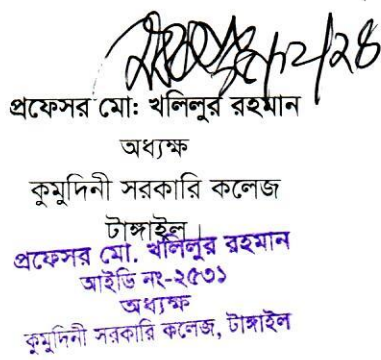 প্রফেসর মো: খলিলুর রহমান
অধ্যক্ষ
কুমুদিনী সরকারি কলেজ
টাঙ্গাইল।
প্রফেসর মো. খলিলুর রহমান
আইডি নং-২৫৩১
অধ্যক্ষ
কুমুদিনী সরকারি কলেজ, টাঙ্গাইল